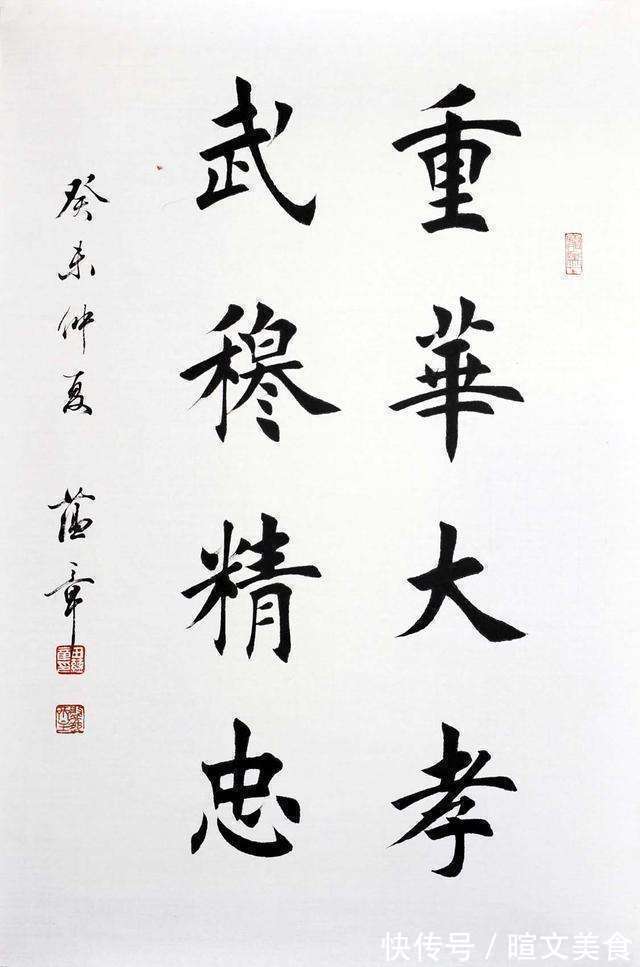 重華大孝
武穆精忠
癸未仲夏 薀章
快传号/暄文美食